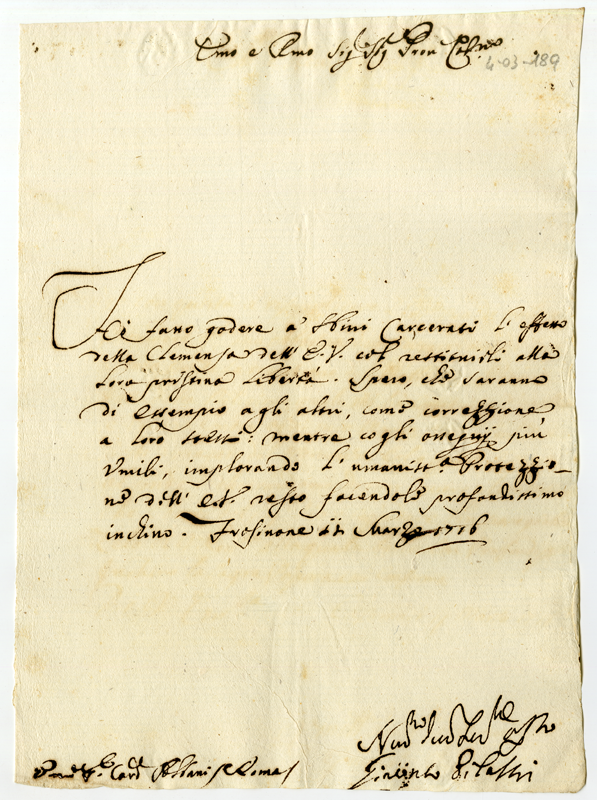 Emo e Rmo Sig. Sig. Pron Col.mo
4-03-189
Hò fatto godere a Sbirri Carcerati l'effetto
della Clemenza dell'E.V. col restituirli alla
loro pristina libertà. Spero, che saranno
di essempio agli altri, come correzzione
a loro stessi: mentre cogli ossequij più
Umili, implorando l'umaniss.a Protezzio-
ne dell'E.V. resto facendole profondissimo
inchino. Frosinone 11 Marzo 1716
Card. Albani Roma
Giacinto Pilastri